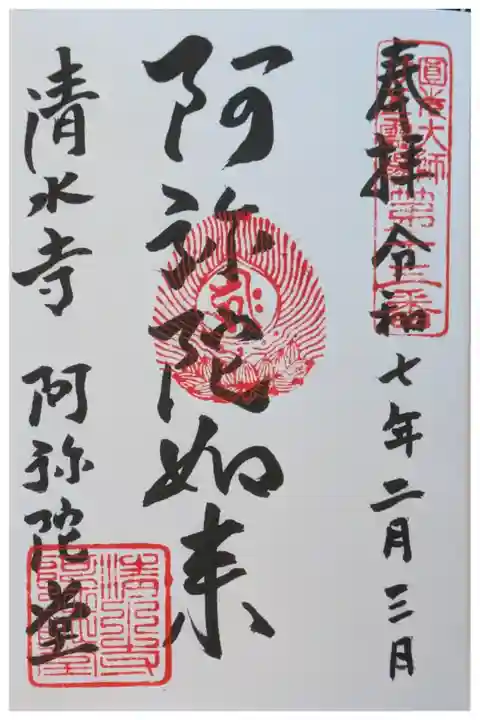 奉拝 令和七年二月三日
圓光大師
霊場
第十三番
阿弥陀如来
清水寺 阿弥陀堂